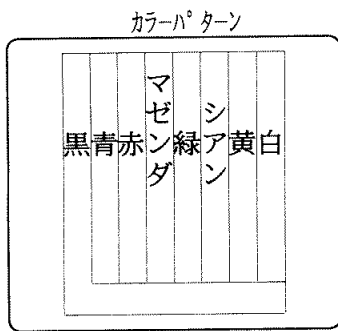 カラーパターン
黒
青
赤
マゼンダ
緑
シアン
黄
白